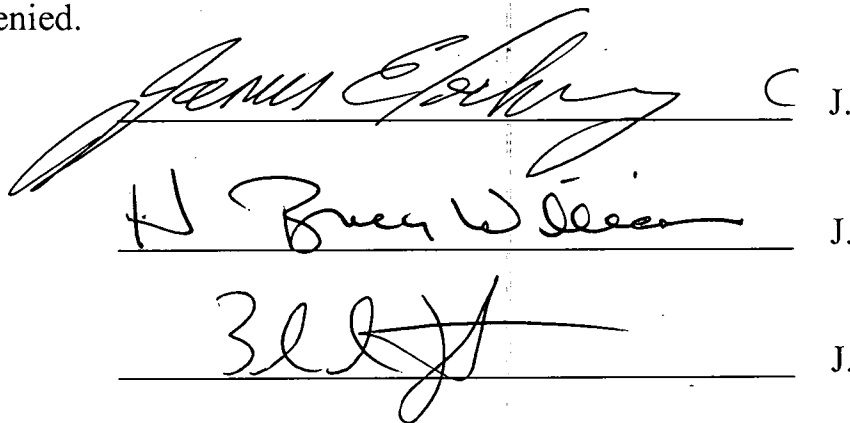 enied.
James E Lockemy C J.
H Bruce Williams J.
J.